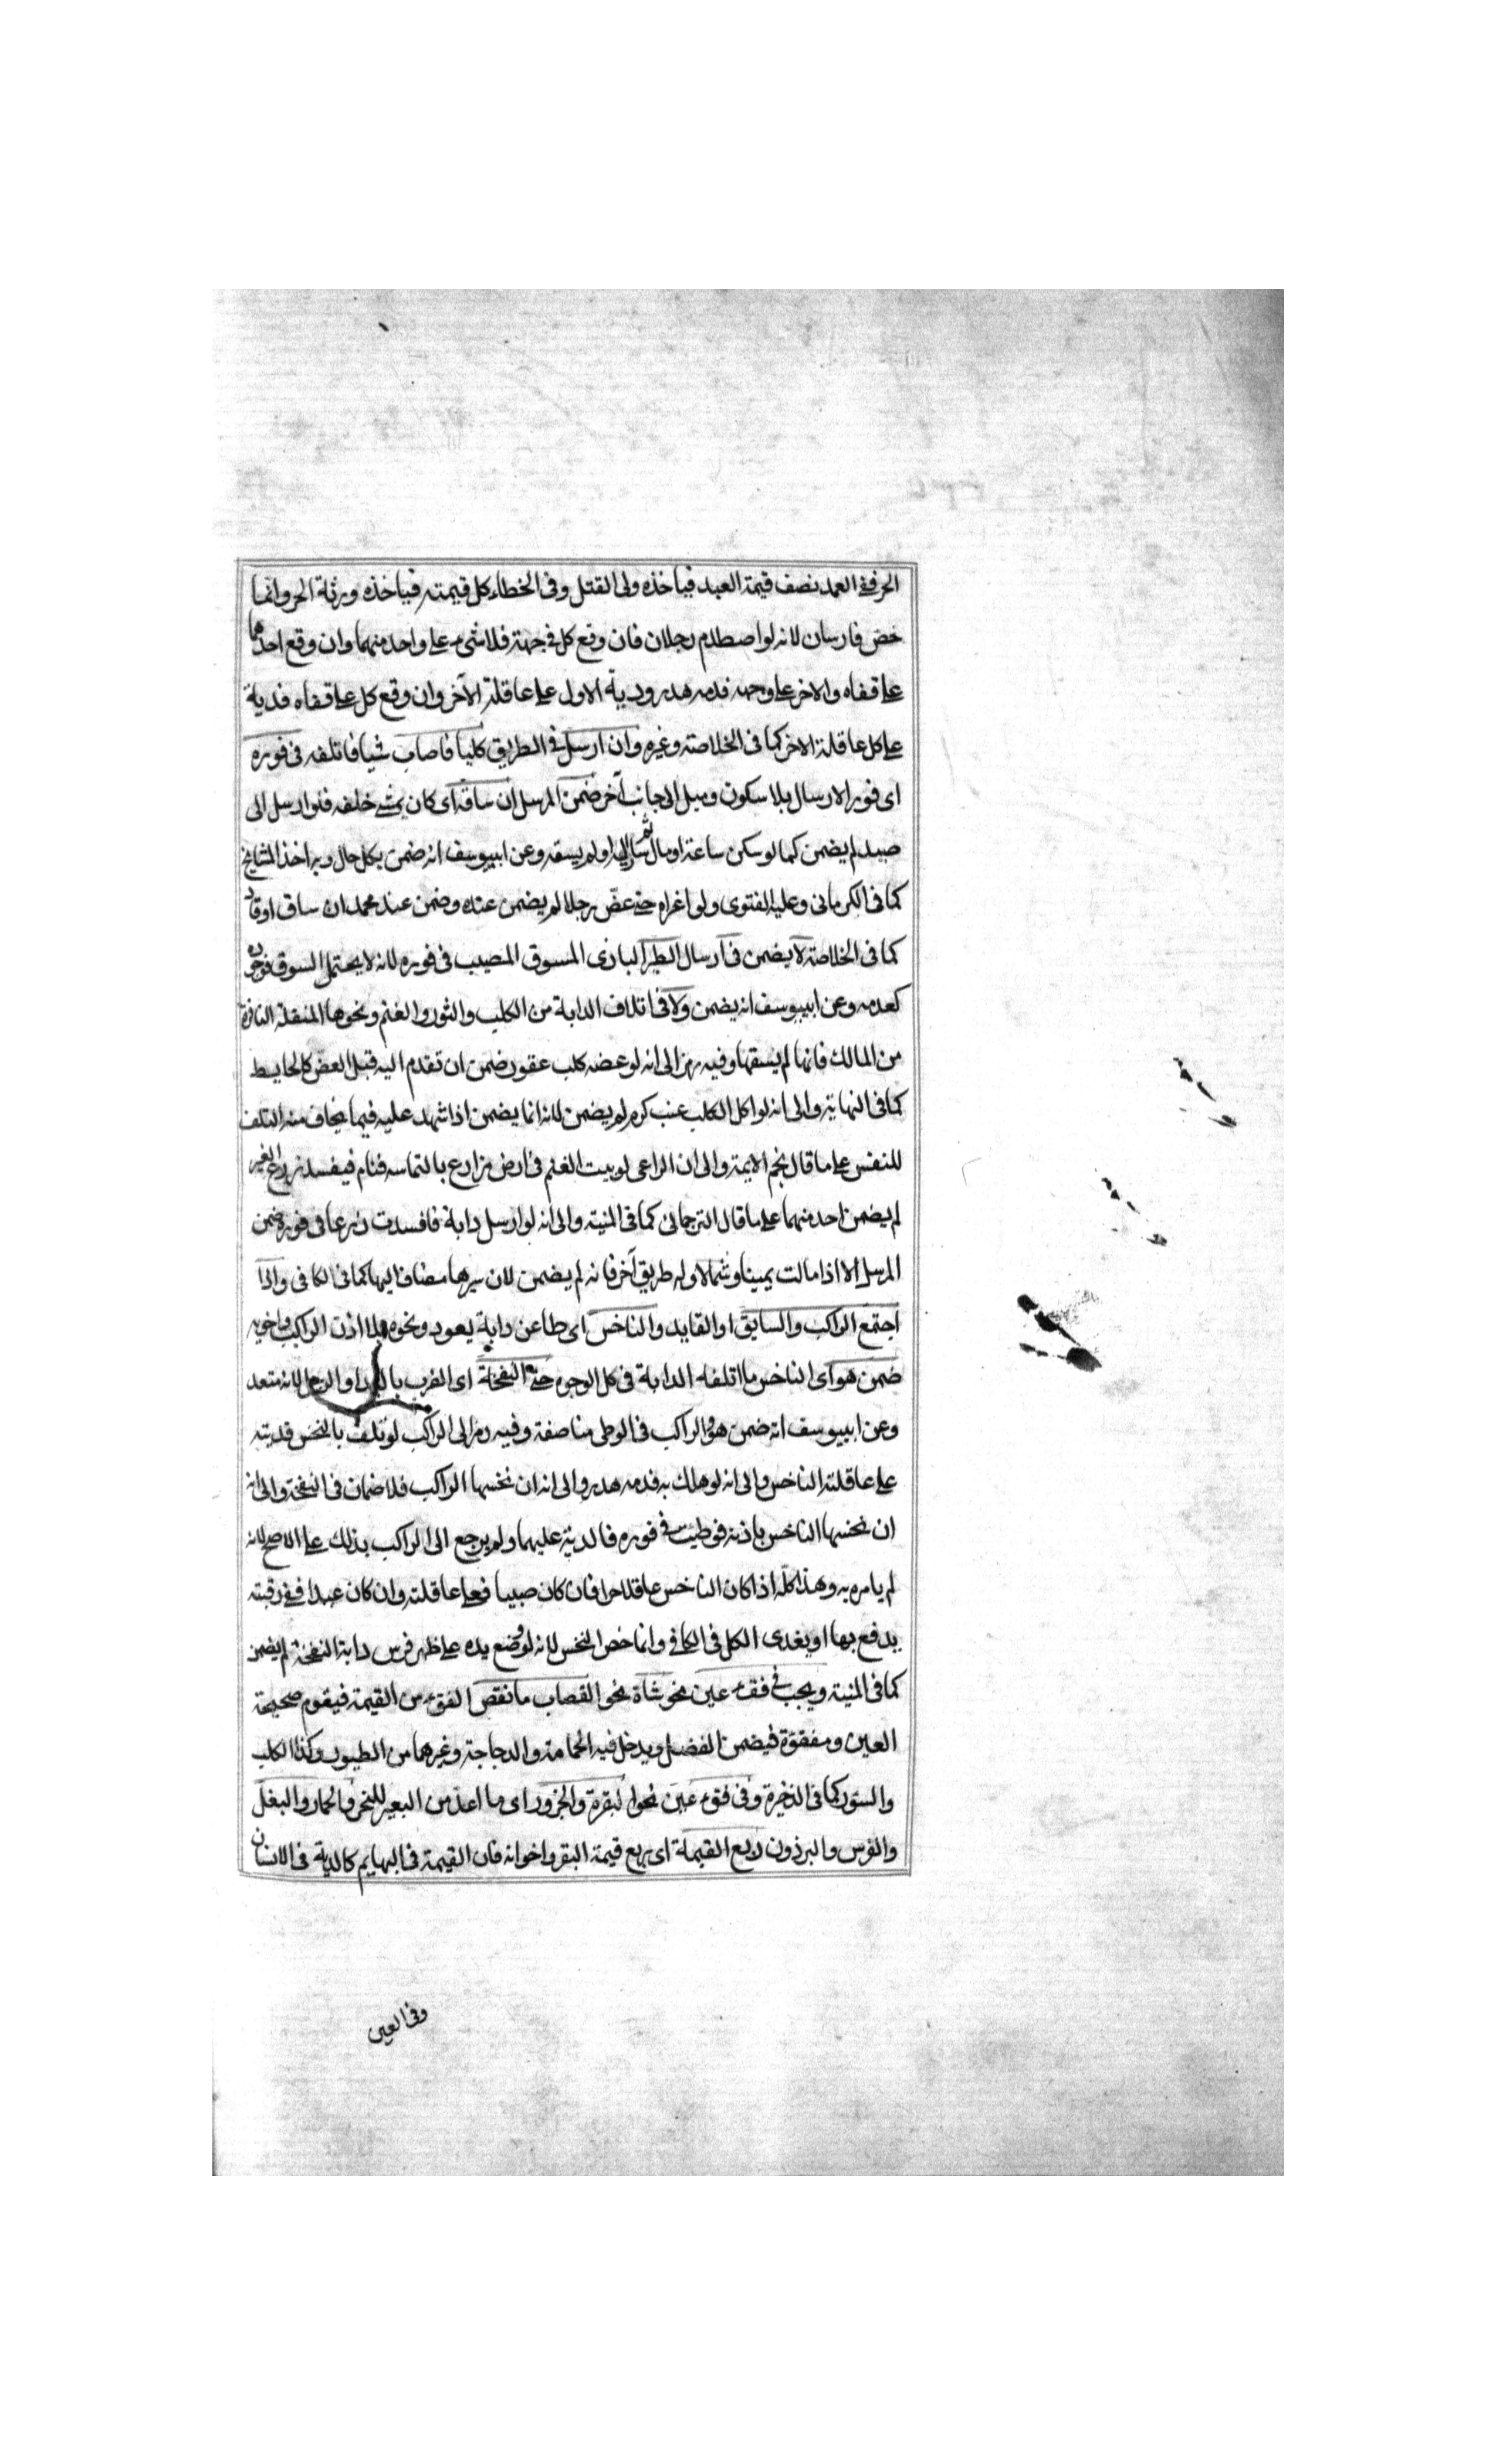 الحر ففى العمد نصف قيمة العبد فياخذه ولى القتل وفى الخطاء كل قيمته فياخذه ورثة الحر وانما
خص فارسان لانه لو اصطدم رجلان فان وقع كل فى جهة فلا شىء على واحد منهما وان وقع احدهما
على قفاه والاخر على وجهه فدمه هدر ودية الاول على عاقلة الآخر وان وقع كل على قفاه فدية
على كل عاقلة الاخر كما فى الخلاصة وغيره وان ارسل فى الطريق كلبا فاصاب شيا فاتلفه فى فوره
اى فور الارسال بلا سكون وميل الى جانب آخر ضمن المرسل ان ساقه اى كان يمشى خلفه فلو ارسل الى
صيد لم يضمن كما لو سكن ساعة او مال ثم سار اليه او لم يسقه وعن ابييوسف انه ضمن بكل حال وبه اخذ المشايخ
كما فى الكرمانى وعليه الفتوى ولو اغراه حتى عضّ رجلا لم يضمن عنده وضمن عند محمد ان ساق او قاد
كما فى الخلاصة لا يضمن فى ارسال الطير البازى المسوق المصيب فى فوره لانه لا يحتمل السوق فوجوده
كعدمه وعن ابييوسف انه يضمن ولا فى اتلاف الدابة من الكلب والثور والغنم ونحوها المنفلتة النافرة
من المالك فانها لم يسقها وفيه رمز الى انه لو عضه كلب عقور ضمن ان تقدم اليه قبل العض كالحايط
كما فى النهاية والى انه لو اكل الكلب عنب كرم لم يضمن لانه انما يضمن اذا شهد عليه فيما يخاف منه التلف
للنفس على ما قال نجم الايمة والى ان الراعى لو بيت الغنم فى ارض مزارع بالتماسه فنام فيفسد زرع الغير
لم يضمن احد منهما على ما قال الترجمانى كما فى المنية والى انه لو ارسل دابة فافسدت زرعا فى فوره ضمن
المرسل الا اذا مالت يمينا وشمالا وله طريق آخر فانه لم يضمن لان سيرها مضاف اليها كما فى الكافى واذا
اجتمع الراكب والسايق او القايد والناخس اى طاعن دابة بعود ونحوه بلا اذن الراكب واخويه
ضمن هو اى الناخس ما اتلفه الدابة فى كل الوجوه حتى النفخة اى الضرب باليد او الرجل لانه متعد
وعن ابييوسف انه ضمن هو والراكب فى الوطى مناصفة وفيه رمز الى الراكب لو تلف بالنخس فديته
على عاقلة الناخس والى انه لو هلك به فدمه هدر والى انه ان نخسها الراكب فلا ضمان فى النفخة والى انه
ان نخسها الناخس باذنه فوطيت فى فوره فالدية عليهما ولم يرجع الى الراكب بذلك على الاصح لانه
لم يامره به وهذا كلّه اذا كان الناخس عاقلا حرا فان كان صبيا فعلى عاقلته وان كان عبدا ففى رقبته
يدفع بها او يفدى الكل فى الكافى وانما خص النخس لانه لو وضع يده على ظهر فرس دابة النفخة لم يضمن
كما فى المنية ويجب فى فقء عين نحو شاة نحو القصاب ما نقص الفقء من القيمة فيقوم صحيحة
العين ومفقؤة فيضمن الفضل ويدخل فيه الحمامة والدجاجة وغيرهما من الطيور وكذا الكلب
والسنور كما فى الذخيرة وفى فقء عين نحو البقرة والجزور اى ما اعدّ من البعير للنحر والحمار والبغل
والفرس والبرذون ربع القيمة اى ربع قيمة البقر واخواته فان القيمة فى البهايم كالدية فى الانسان
وفى العين